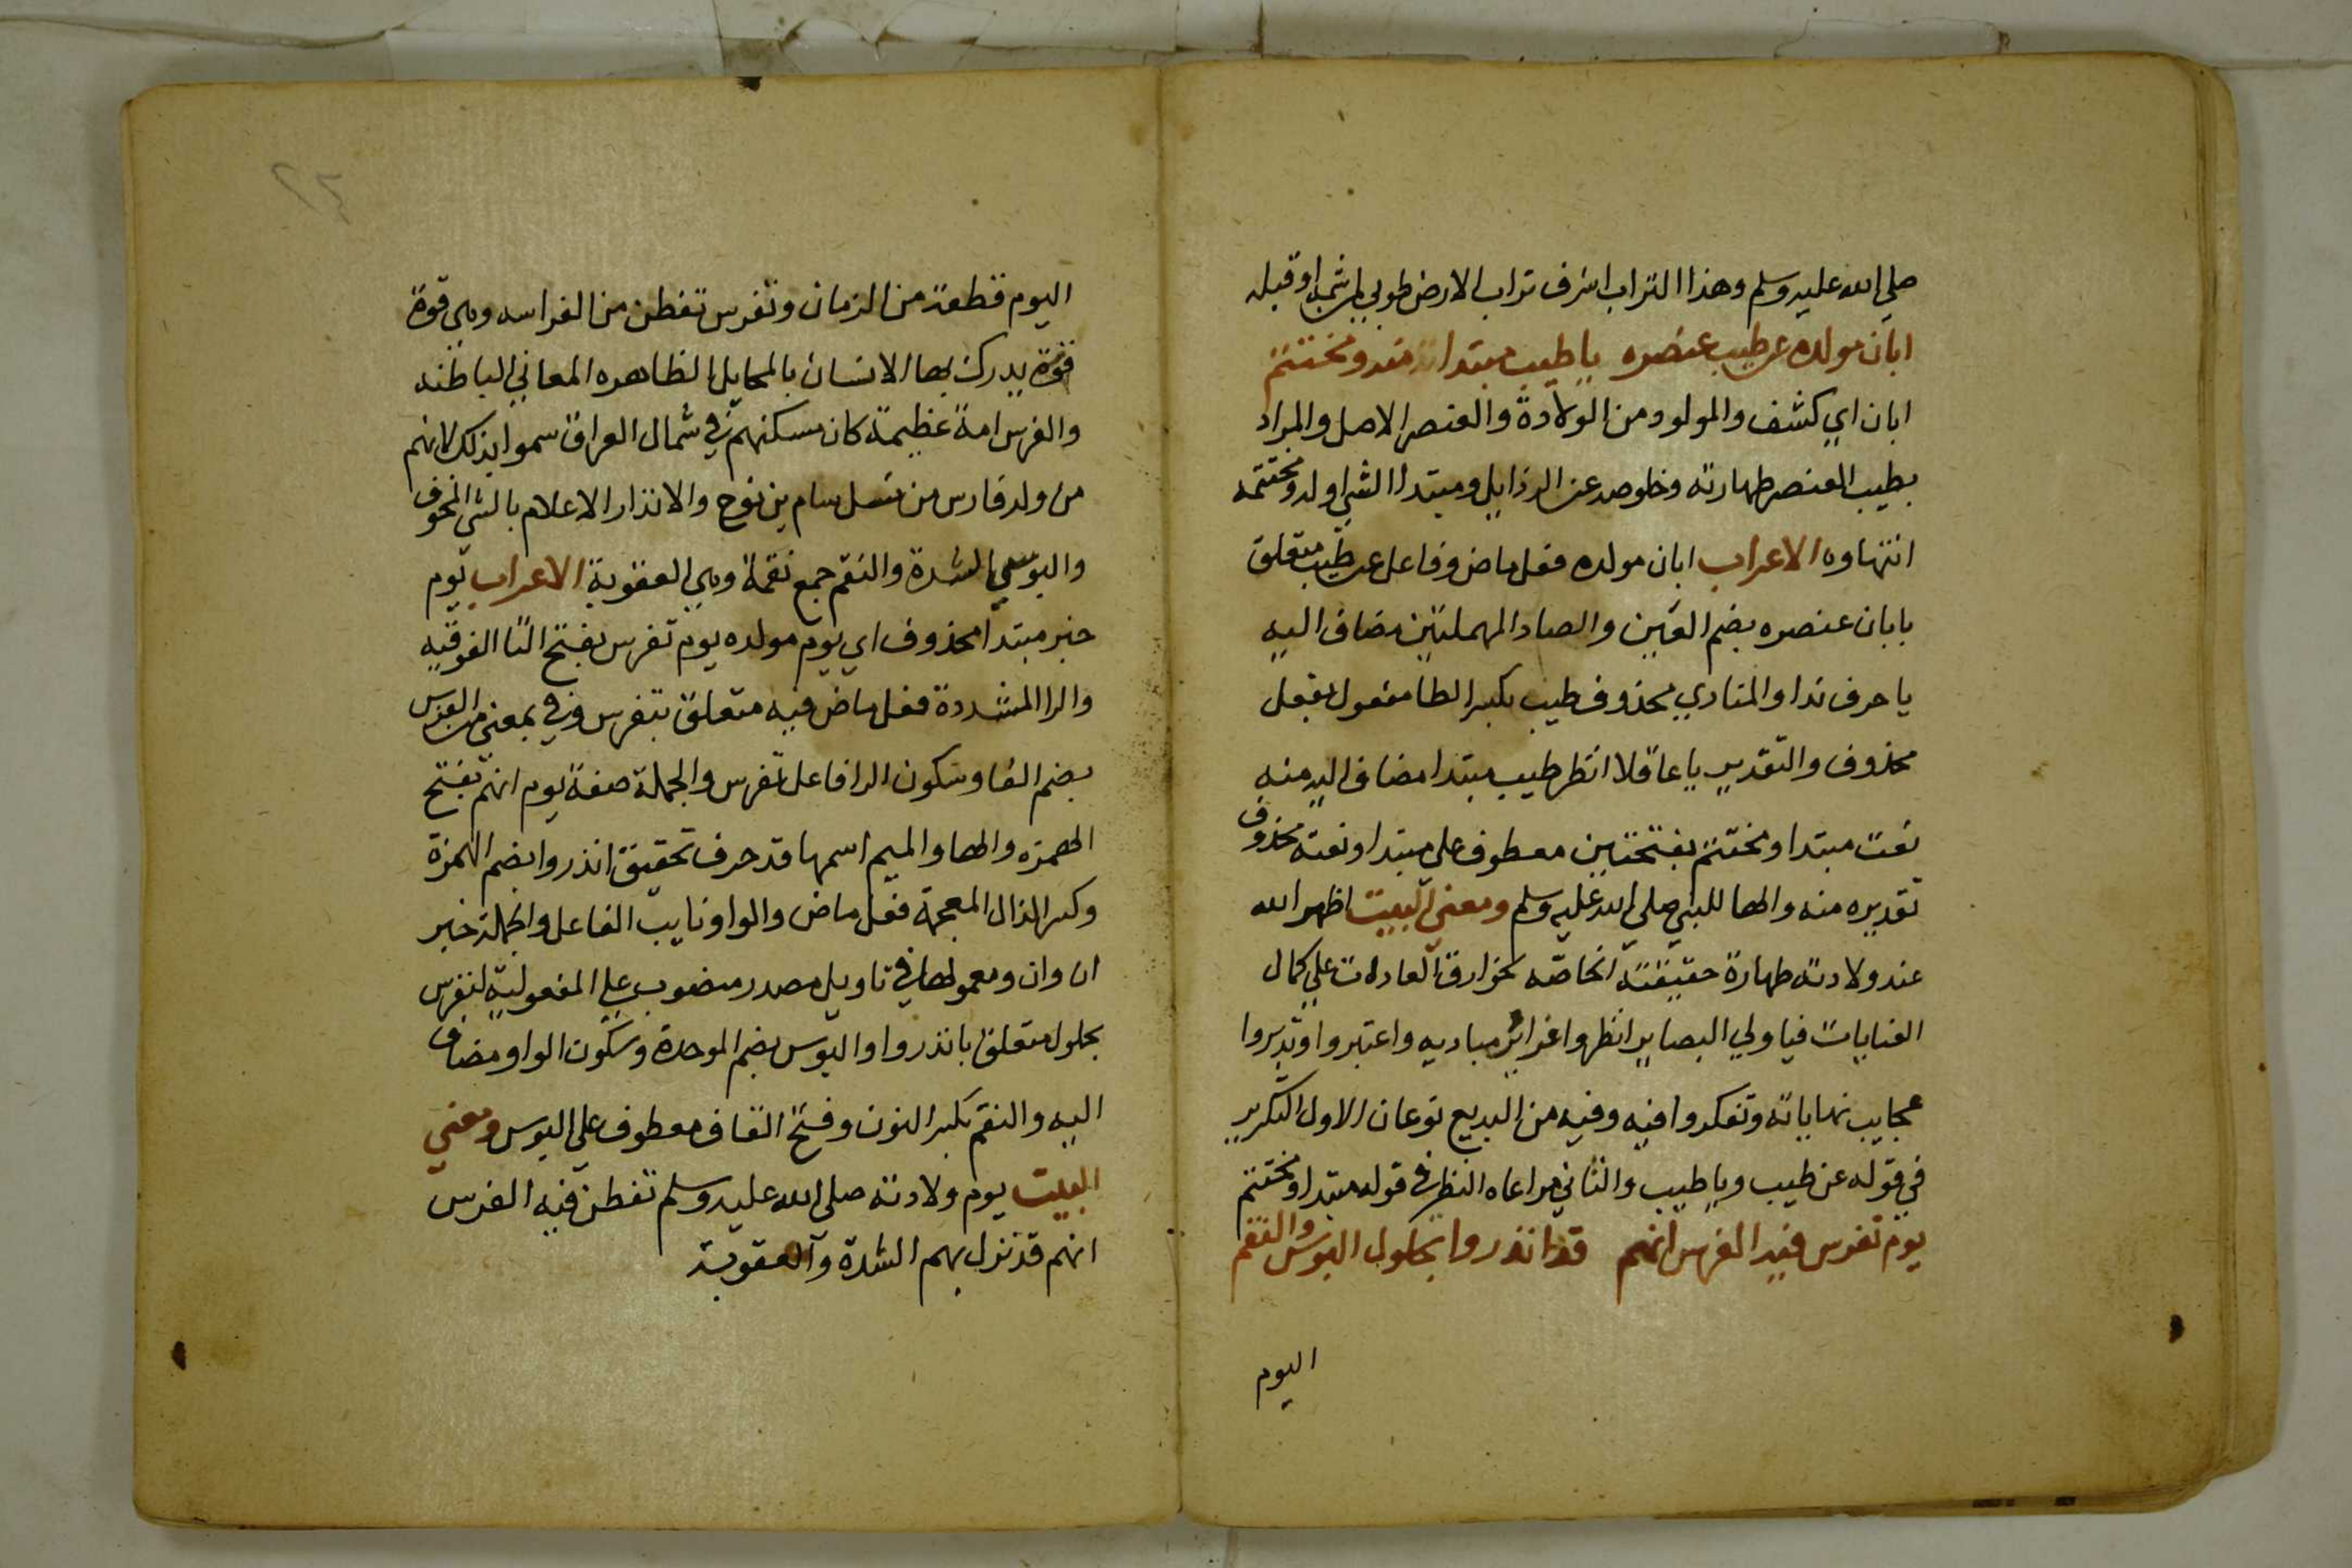 صلي الله عليه وسلم وهذا التراب اشرف تراب الارض طوبي لمن شمه او قبله
ابان مولده عن طيب عنصره يا طيب مبتدا منه ومختتم
ابان اي كشف والمولود من الولادة والعنصر الاصل والمراد
بطيب العنصر طهارته وخلوصه عن الرذايل ومبتدا الشي اوله ومختتمه
انتهاوه الاعراب ابان مولده فعل ماض وفاعل عن طيب متعلق
بابان عنصره بضم العين والصاد المهملتين مضاف اليه
يا حرف ندا والمنادي محذوف طيب بكسر الطا مفعول بفعل
محذوف والتقدير يا عاقلا انظر طيب مبتدا مضاف اليه منه
نعت مبتدا ومختتم بفتحتين معطوف علي مبتدا ونعته محذوف
تقديره منه والها للنبي صلي الله عليه وسلم ومعني البيت اظهر الله
عند ولادته طهارة حقيقته الخاصه لخوارق العادات علي كمال
العنايات فيا ولي البصاير انظروا غرائر مباديه واعتبروا وتدبروا
عجايب نهاياته وتفكروا فيه وفيه من البديع نوعان الاول التكرير
في قوله عن طيب ويا طيب والثاني مراعاه النظير في قوله مبتدا ومختتم
يوم تفرس فيه الفرس انهم قد انذروا بحلول البوس والنقم
اليوم
٢٤
اليوم قطعة من الزمان وتفرس تفطن من الفراسه وهي قوة
قوة يدرك بها الانسان بالمحايل الظاهره المعاني الباطنه
والفرس امة عظيمة كان مسكنهم في شمال العراق سموا بذلك لانهم
من ولد فارس من نسل سام بن نوح والانذار الاعلام بالشي المخوف
والبوسي الشدة والنقم جمع نقمة وهي العقوبة الاعراب يوم
خبر مبتدا محذوف اي يوم مولده يوم تفرس بفتح التا الفوقيه
والرا المشددة فعل ماض فيه متعلق بتفرس وفي بمعني من الفرس
بضم الفا وسكون الرا فاعل تفرس والجملة صفة يوم انهم بفتح
الهمزه والها والميم اسمها قد حرف تحقيق انذروا بضم الهمزة
وكسر الذال المعجمة فعل ماض والواو نايب الفاعل والجملة خبر
ان وان ومعمولها في تاويل مصدر منصوب علي المفعولية لتفرس
بحلول متعلق بانذروا والبوس بضم الموحدة وسكون الواو مضاف
اليه والنقم بكسر النون وفتح القاف معطوف علي البوس ومعني
البيت يوم ولادته صلي الله عليه وسلم تفطن فيه الفرس
انهم قد نزل بهم الشدة والعقوبة